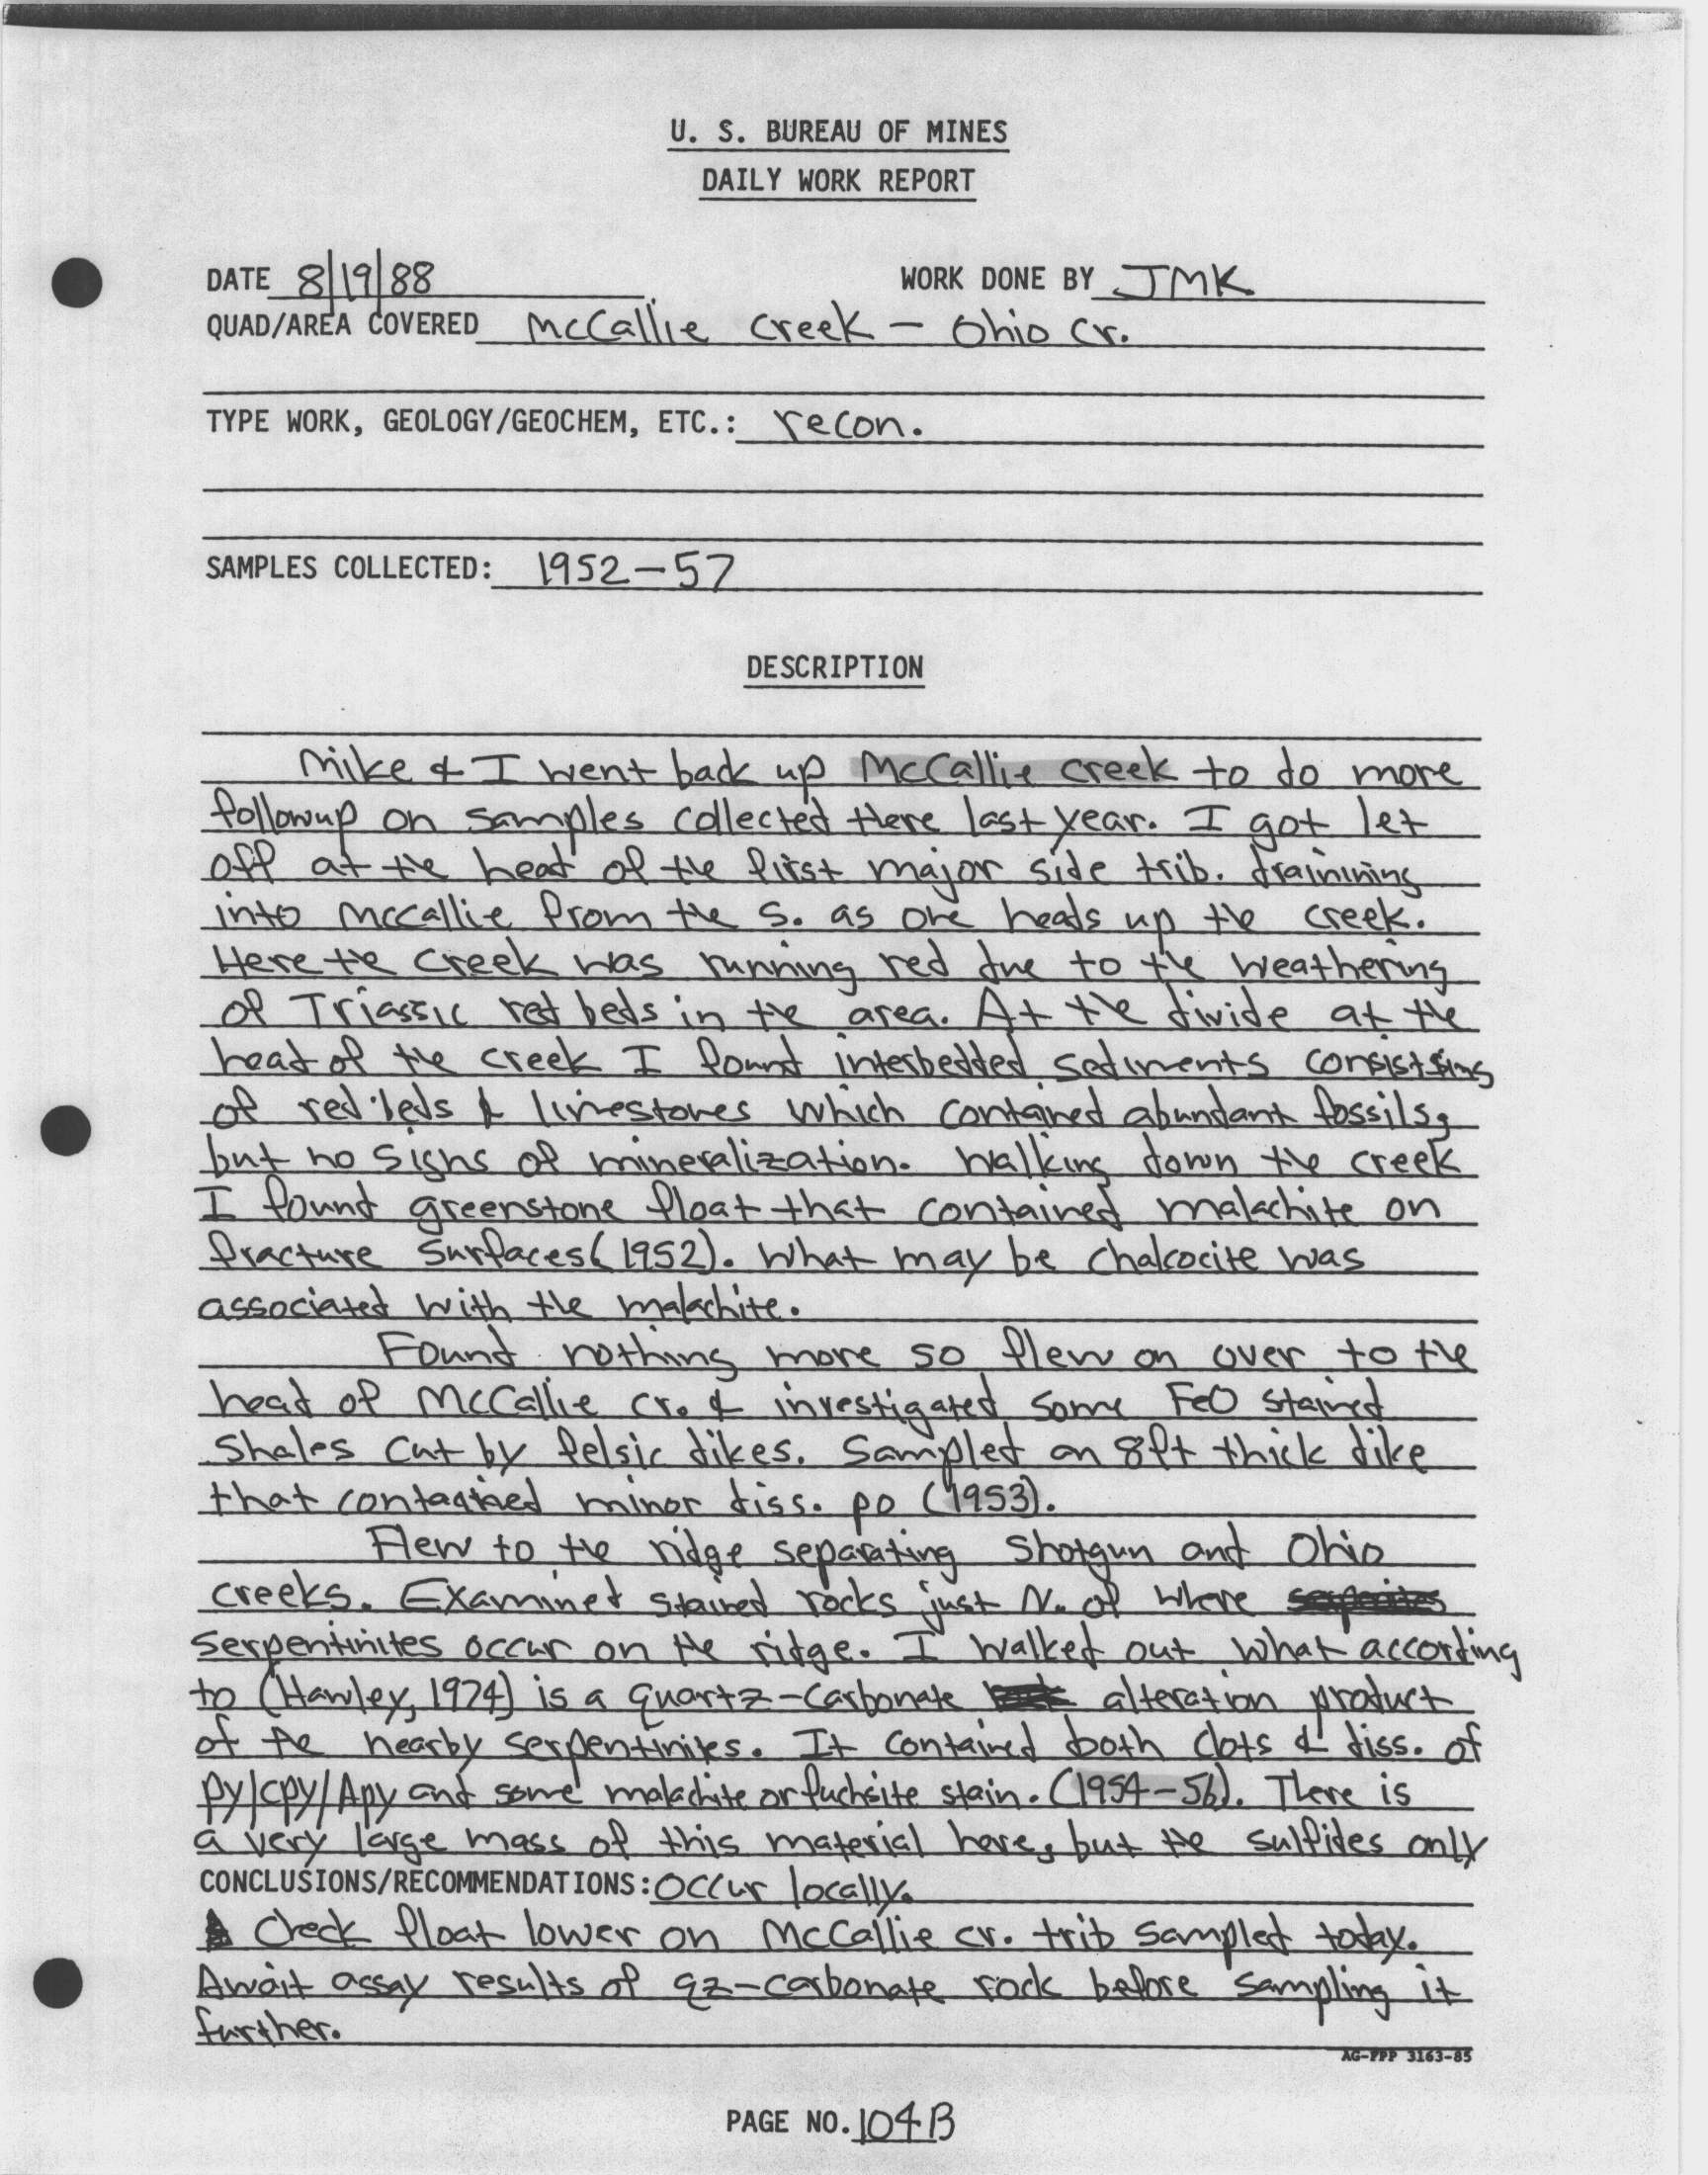 U. S. BUREAU OF MINES
DAILY WORK REPORT
DATE 8/19/88 WORK DONE BY JMK
QUAD/AREA COVERED McCallie Creek - Ohio Cr.
TYPE WORK, GEOLOGY/GEOCHEM, ETC.: recon.
SAMPLES COLLECTED: 1952-57
DESCRIPTION
Mike & I went back up McCallie creek to do more
followup on samples collected there last year. I got let
off at the head of the first major side trib. drainining
into McCallie from the S. as one heads up the creek.
Here the creek was running red due to the weathering
of Triassic red beds in the area. At the divide at the
head of the creek I found interbedded sediments consisting
of red beds & limestones which contained abundant fossils,
but no signs of mineralization. Walking down the creek
I found greenstone float that contained malachite on
fracture surfaces (1952). What may be chalcocite was
associated with the malachite.
Found nothing more so flew on over to the
head of McCallie cr. & investigated some FeO stained
shales cut by felsic dikes. Sampled an 8ft thick dike
that contained minor diss. po (1953).
Flew to the ridge separating Shotgun and Ohio
creeks. Examined stained rocks just N. of where
serpentinites occur on the ridge. I walked out what according
to (Hawley, 1974) is a quartz-carbonate alteration product
of the nearby serpentinites. It contained both clots & diss. of
py/cpy/Apy and some malachite or fuchsite stain. (1954-56). There is
a very large mass of this material here, but the sulfides only
CONCLUSIONS/RECOMMENDATIONS: occur locally.
Check float lower on McCallie cr. trib sampled today.
Await assay results of qz-carbonate rock before sampling it
further.
AG-FPP 3163-85
PAGE NO. 104B